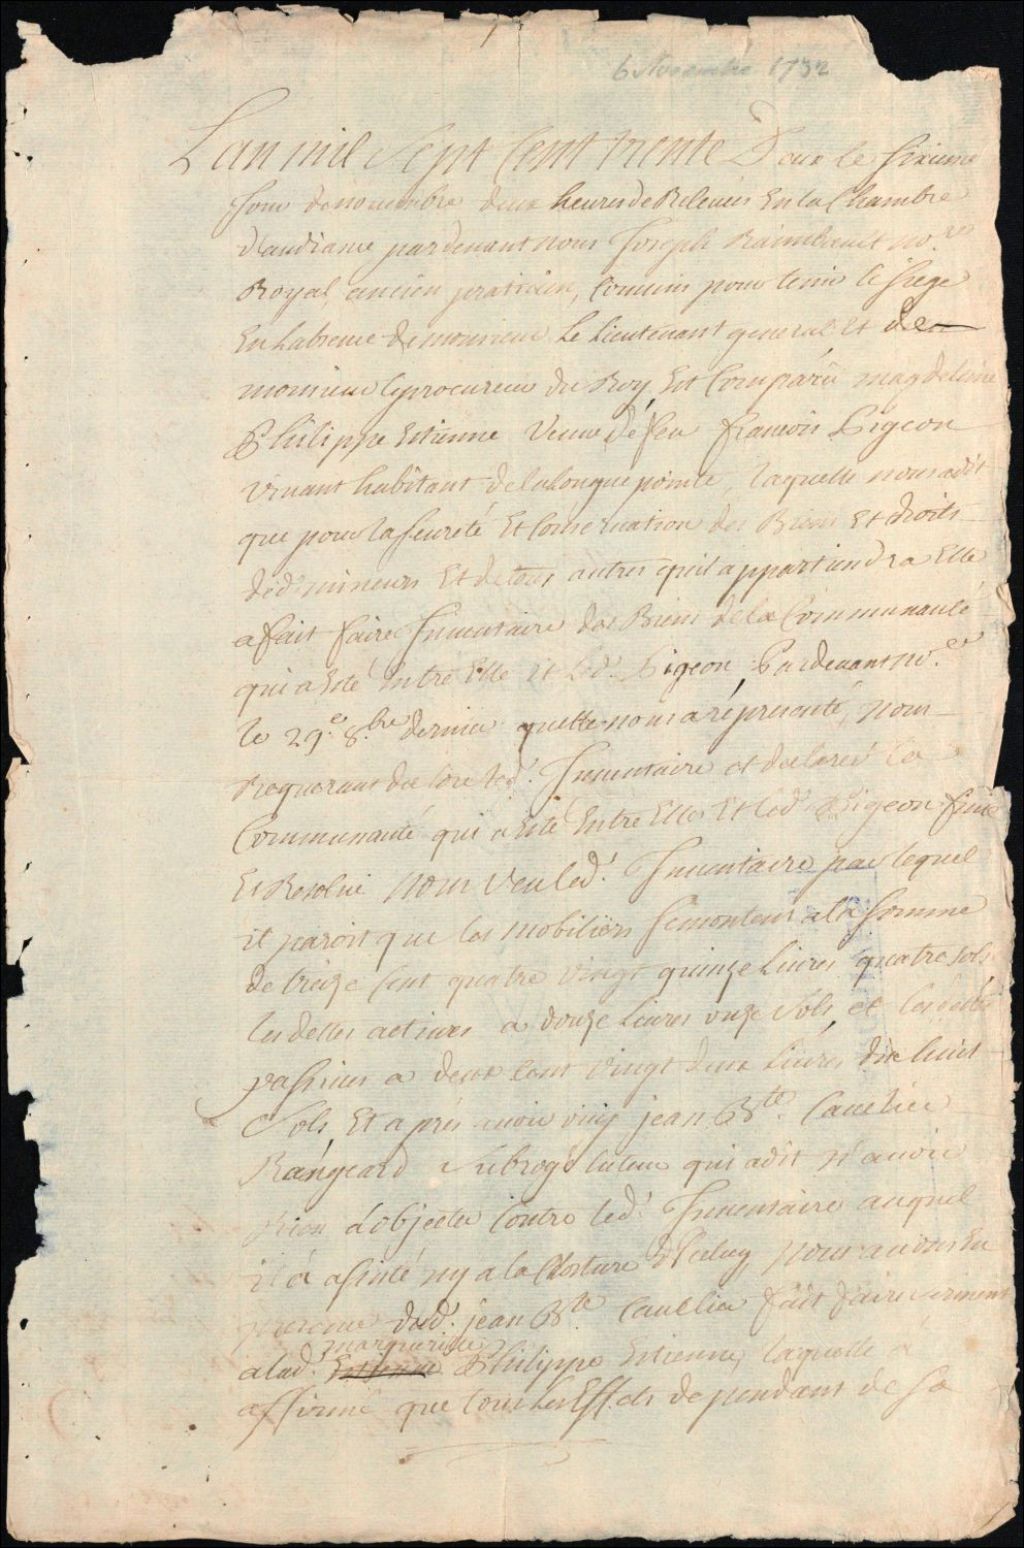 6 Novembre 1732
Lan mil Sept Cent trente Deux le sixieme
Jour de novembre deux heures de Relevée En la Chambre
d'audiance pardevant nous Joseph Raimbault no.re
Royal, ancien praticien, Commis pour tenir le siege
En Labsence de monsieur Le Lieutenant general et de
monsieur le procureur du Roy, Est Comparüe magdeleine
Philippe Estienne Veuve de feu francois Pigeon
vivant habitant de la longue pointe, laquelle nous a dit
que pour la seureté Et Conservation des Biens Et droits
desd. mineurs Et de tous autres qu'il appartiendra Elle
a fait faire Inventaire des Biens de la Communauté
qui a Esté Entre Elle et led. Pigeon, Pardevant no.re
le 29.e 8.bre dernier quelle nous a représenté, nous
Requerant de clore led. Inventaire et declarer la
Communauté qui a Esté Entre Elle Et led. Pigeon finie
Et Resolue nous Veu led. Inventaire par lequel
il paroit que les mobiliers se montent a la somme
de treize Cent quatre vingt quinze Livres quatre sols
les dettes actives a douze Livres onze Sols, et les dettes
passives a deux Cent vingt deux Livres dix huit
Sols, Et aprés avoir ouy jean B.te Cavelier
Rangeard Subrogé tuteur qui a dit N'avoir
Rien a objecter Contre led. Inventaire auquel
il a assisté ny a la Closture d'Iceluy, nous avons En
presence dud. jean B.te Cavelier fait faire serment
marguerite
a lad. Estienne Philippe Estienne, laquelle a
affirmé que tous les Effets dependant de sa